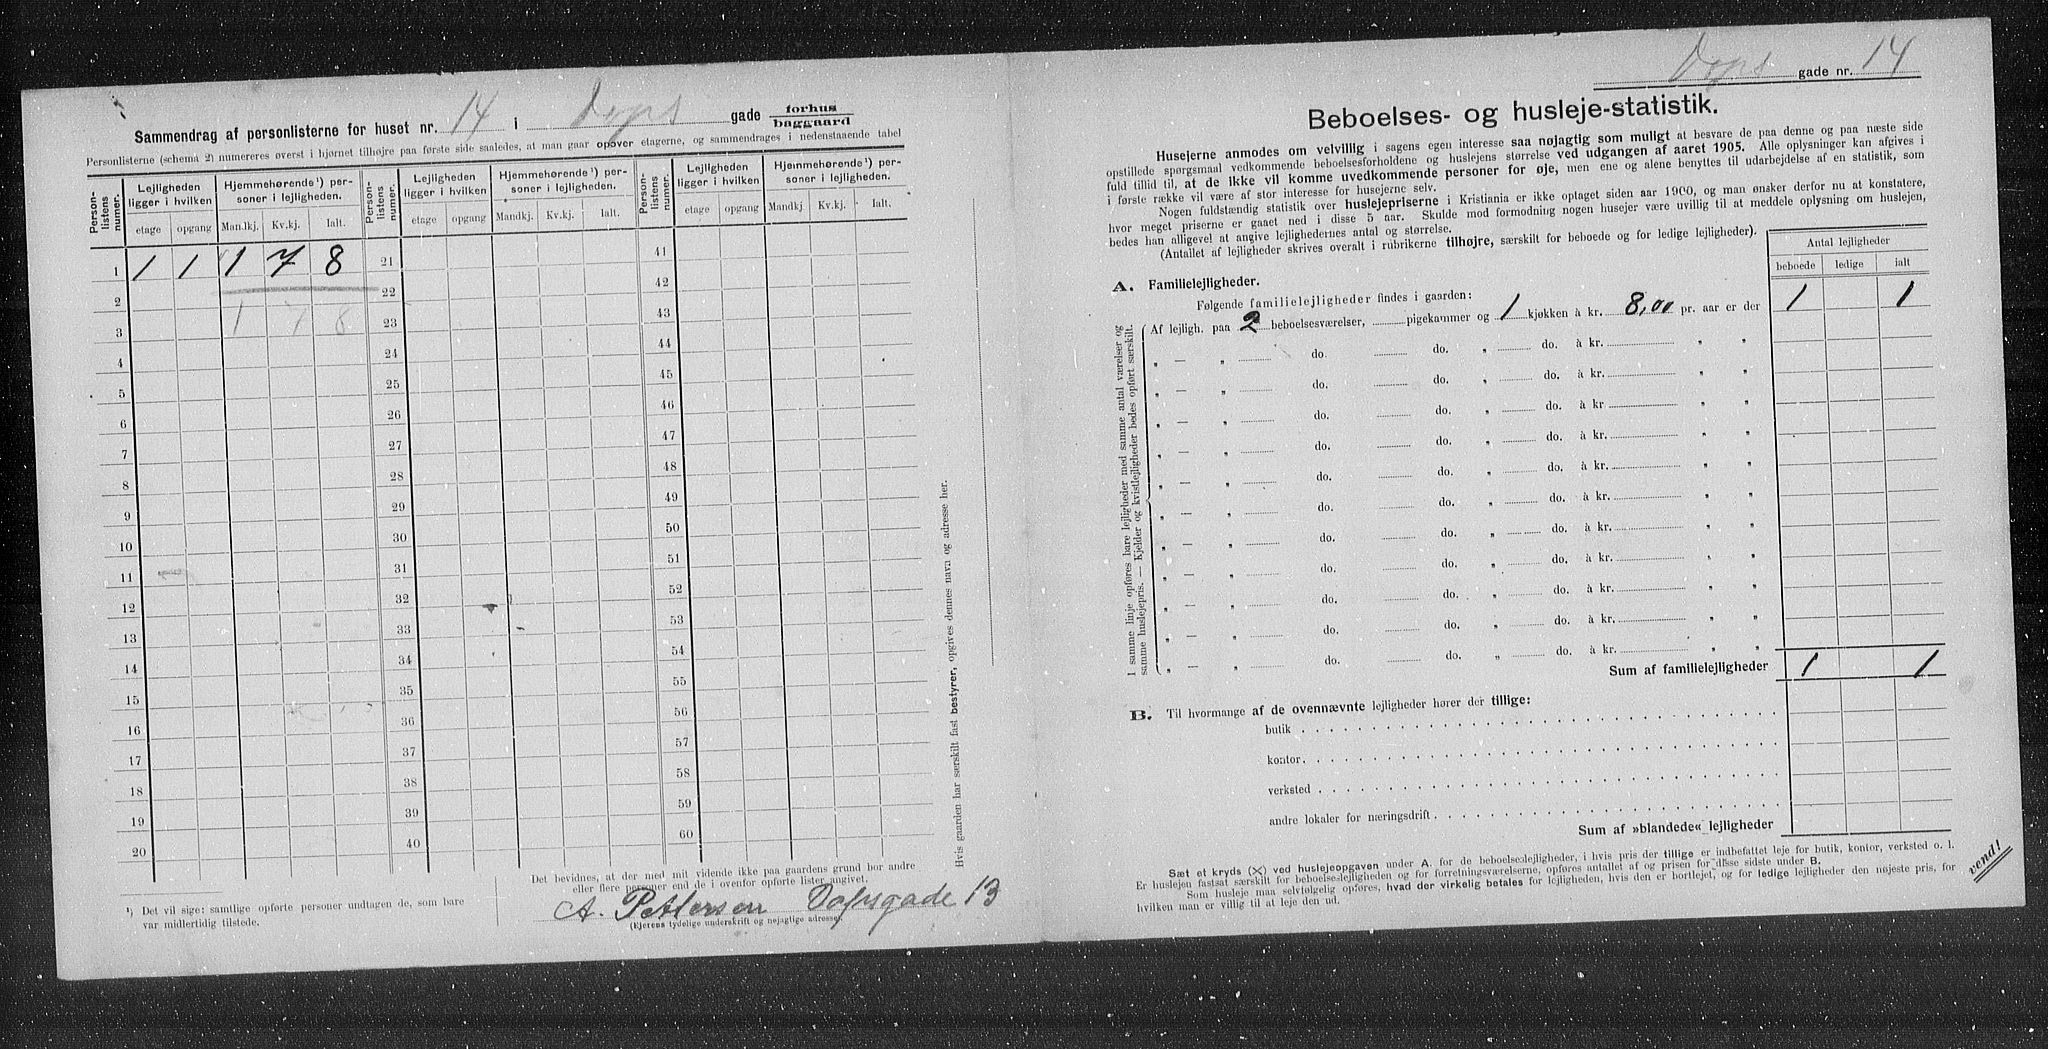 Sammendrag af personlisterne for huset nr. 14 i Dops gade forhus baggaard
Personlisterne (schema 2) numereres øverst i hjørnet tilhøjre paa første side saaledes, at man gaar opover etagerne, og sammendrages i nedenstaaende tabel
Person-listens numer. Lejligheden ligger i hvilken etage opgang Hjemmehørende¹) personer i lejligheden. Man.lkj. Kv.kj. Ialt.
Person-listens numer. Lejligheden ligger i hvilken etage opgang Hjemmehørende¹) personer i lejligheden. Mandkj. Kv.kj. Ialt.
Person-listens numer. Lejligheden ligger i hvilken etage opgang Hjemmehørende¹) personer i lejligheden. Mandkj Kv.kj. Ialt.
1 1 1 1 7 8 21 41
2 22 42
3 1 7 8 23 43
4 24 44
5 25 45
6 26 46
7 27 47
8 28 48
9 29 49
10 30 50
11 31 51
12 32 52
13 33 53
14 34 54
15 35 55
16 36 56
17 37 57
18 38 58
19 39 59
20 40 60
Hvis gaarden har særskilt fast bestyrer, opgives dennes navn og adresse her.
¹) Det vil sige: samtlige opførte personer undtagen de, som bare
var midlertidig tilstede.
Det bevidnes, at der med mit vidende ikke paa gaardens grund bor andre
eller flere personer end de i ovenfor opførte lister angivet.
A. Pettersen Dopsgade 13
(Ejerens tydelige underskrift og nøjagtige adresse).
Dops gade nr. 14
Beboelses- og husleje-statistik.
Husejerne anmodes om velvillig i sagens egen interesse saa nøjagtig som muligt at besvare de paa denne og paa næste side
opstillede spørgsmaal vedkommende beboelsesforholdene og huslejens størrelse ved udgangen af aaret 1905. Alle oplysninger kan afgives i
fuld tillid til, at de ikke vil komme uvedkommende personer for øje, men ene og alene benyttes til udarbejdelse af en statistik, som
i første række vil være af stor interesse for husejerne selv.
Nogen fuldstændig statistik over huslejepriserne i Kristiania er ikke optaget siden aar 1900, og man ønsker derfor nu at konstatere,
hvor meget priserne er gaaet ned i disse 5 aar. Skulde mod formodning nogen husejer være uvillig til at meddele oplysning om huslejen,
bedes han alligevel at angive lejlighedernes antal og størrelse.
(Antallet af lejligheder skrives overalt i rubrikerne tilhøjre, særskilt for beboede og for ledige lejligheder).
Antal lejligheder
beboede ledige ialt
A. Familielejligheder.
Følgende familielejligheder findes i gaarden:
Af lejligh. paa 2 beboelsesværelser, pigekammer og 1 kjøkken à kr. 8,00 pr. aar er der 1 1
„ — „ do. do. „ do. à kr. „ „
„ — „ do. do. „ do. à kr. „ „
„ — „ do. do. „ do. à kr „ „
„ — „ do. do. „ do. à kr. „ „
„ — „ do. do. „ do. à kr. „ „
„ — „ do. do. „ do. à kr. „ „
„ — „ do. do. „ do. à kr. „ „
„ — „ do. do. „ do. à kr. „ „
„ — „ do. do. „ do. à kr. „ „
„ — „ do. do. „ do. à kr. „ „
„ — „ do. do. „ do. à kr. „ „
I samme linje opføres bare lejligheder med samme antal værelser og
samme huslejepris. — Kjelder og kvistlejligheder bedes opført særskilt.
Sum af familielejligheder 1 1
B. Til hvormange af de ovennævnte lejligheder hører der tillige:
butik
kontor.
verksted
andre lokaler for næringsdrift
Sum af »blandede« lejligheder
Sæt et kryds (X) ved huslejeopgaven under A. for de beboelseslejligheder, i hvis pris der tillige er indbefattet leje for butik, kontor, verksted o. l.
Er huslejen fastsat særskilt for beboelseslejligheden og for forretningsværelserne, opføres antallet af og prisen for disse sidste under B.
Som husleje maa selvfølgelig opføres, hvad der virkelig betales for lejligheden, hvis den er bortlejet, og for ledige lejligheder den nøjeste pris, for
hvilken man er villig til at leje den ud.
vend!